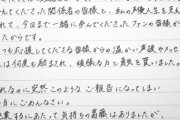 くださった関係者の皆様と、私の声優人生を支え
れて、今日まで一緒に歩んでくださったファンの皆様が
たからです。
つも応援してくださる皆様からの温かい声援やメッセ
には何度も励まされ、頑張る力と勇気を貰いました。
れなのに突然このようなご報告になってしまい
当にごめんなさい。
するにあたって気持ちの葛藤はありましたが、